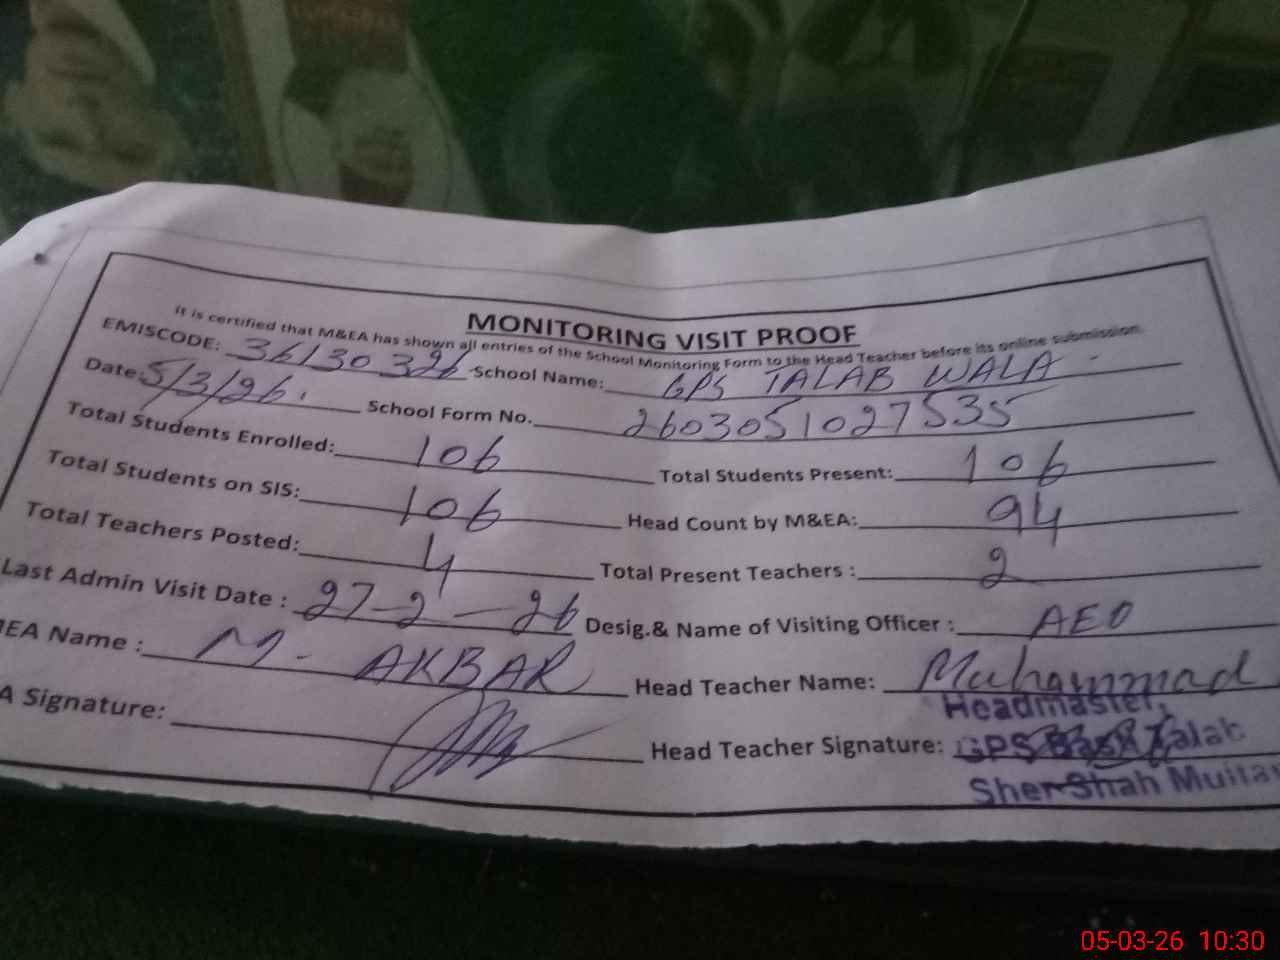 MONITORING VISIT PROOF
It is certified that M&EA has shown all entries of the School Monitoring Form to the Head Teacher before its online submission.
EMISCODE: 36130326 School Name: GPS TALAB WALA -
Date: 5/3/26. School Form No. 2603051027535
Total Students Enrolled: 106 Total Students Present: 106
Total Students on SIS: 106 Head Count by M&EA: 94
Total Teachers Posted: 4 Total Present Teachers : 2
Last Admin Visit Date : 27-2-26 Desig.& Name of Visiting Officer : AEO
EA Name : M- AKBAR Head Teacher Name: Muhammad
A Signature: Head Teacher Signature:
Headmaster,
GPS Talab
Sher Shah Multa
05-03-26 10:30